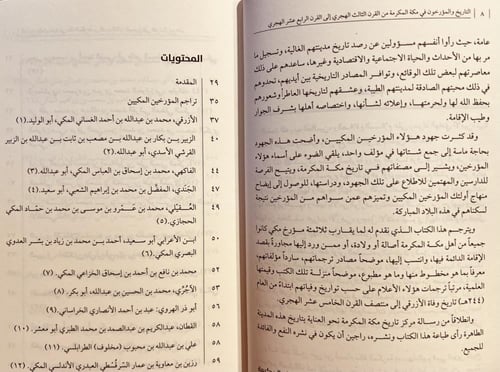 ٨ | التاريخ والمؤرخون في مكة المكرمة من القرن الثالث الهجري إلى القرن الرابع عشر الهجري
عامة، حيث رأوا أنفسهم مسؤولين عن رصد تاريخ مدينتهم الغالية، وتسجيل ما
مر بها من الأحداث والحياة الاجتماعية والاقتصادية وغيرها، ساعدهم على ذلك
معاصرتهم لبعض تلك الوقائع، وتوافر المصادر التاريخية بين أيديهم، تحدوهم
في ذلك محبتهم الصادقة لمدينتهم الطيبة، وعشقهم لتاريخها العاطر، وشعورهم
بحفظ الله لها ولحرمتها، وإعلائه لشأنها، واختصاصه أهلها بشرف الجوار
وطيب الإقامة.
وقد كثرت جهود هؤلاء المؤرخين المكيين، وأضحت هذه الجهود
بحاجة ماسة إلى جمع شتاتها في مؤلف واحد، يلقي الضوء على أسماء هؤلاء
المؤرخين، ويشير إلى مصنفاتهم في تاريخ مكة المكرمة، ويتيح الفرصة
للدارسين والمهتمين للاطلاع على تلك الجهود، ودراستها، للوصول إلى إيضاح
منهاج أولئك المؤرخين المكيين وتميزهم عمن سواهم من المؤرخين نتيجة
لسكناهم في هذه البلاد المباركة.
ويترجم هذا الكتاب الذي نقدم له لما يقارب ثلاثمئة مؤرخ مكي كانوا
جميعاً من أهل مكة المكرمة أصالة أو ولادة، أو ممن ورد إليها مجاورة بقصد
الإقامة الدائمة فيها، وانتسب إليها، موضحاً مصادر ترجماتهم، سارداً مؤلفاتهم،
معرفاً بما هو مخطوط منها وما هو مطبوع، موضحاً منزلة تلك الكتب وقيمتها
العلمية، مرتباً ترجمات هؤلاء الأعلام على حسب تواريخ وفياتهم ابتداءً من عام
(٢٤٤هـ) تاريخ وفاة الأزرقي إلى منتصف القرن الخامس عشر الهجري.
وانطلاقاً من رسالة مركز تاريخ مكة المكرمة نحو العناية بتاريخ هذه المدينة
الطاهرة رأى طباعة هذا الكتاب ونشره، راجين أن يكون في نشره النفع والفائدة
المحتويات
المقدمة ٢٩
تراجم المؤرخين المكيين ٣٥
الأزرقي، محمد بن عبدالله بن أحمد الغساني المكي، أبو الوليد.(١) ٣٧
الزبير بن بكار بن عبدالله بن مصعب بن ثابت بن عبدالله بن الزبير ٤٠
القرشي الأسدي، أبو عبدالله.(٢)
الفاكهي، محمد بن إسحاق بن العباس المكي، أبو عبدالله.(٣) ٤٤
الجندي، المفضل بن محمد بن إبراهيم الشعبي، أبو سعيد.(٤) ٤٧
العُقَيْلي، محمد بن عَمْرو بن موسى بن محمد بن حمّاد المكي ٤٩
الحجازي.(٥)
ابن الأعرابي أبو سعيد، أحمد بن محمد بن زياد بن بشر العدوي ٥١
البصري المكي.(٦)
محمد بن نافع بن أحمد بن إسحاق الخزاعي المكي.(٧) ٥٢
الآجُرّي، محمد بن الحسين بن عبدالله، أبو بكر.(٨) ٥٣
أبو ذر الهروي، عبد بن أحمد الأنصاري الخراساني.(٩)
القطان، عبدالكريم بن عبدالصمد بن محمد الطبري أبو معشر.(١٠)
علي بن عبدالله بن محبوب (مخلوف) الطرابلسي.(١١)
رزين بن معاوية بن عمار السَّرَقُسْطي العبدري الأندلسي المكي.(١٢) ٥٩